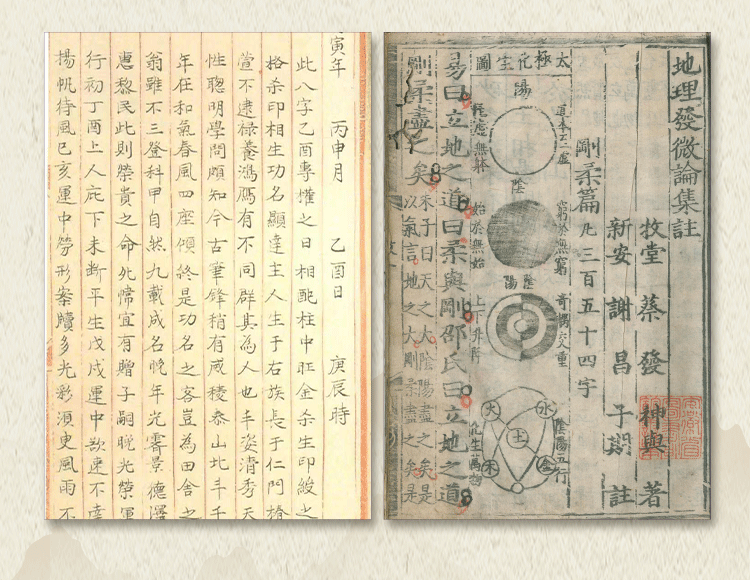 地理發微論集註
牧堂蔡發神與著
新安謝昌子期註
剛柔篇凡三百五十四字
太極化生圖
陽
陰
窮於無窮
始於無始
陰陽
上下升降
陰陽五行
化生萬物
水
火
土
木
金
易曰立地之道曰柔與剛邵氏曰立地之道
剛柔盡之矣
朱子曰天之大陰陽盡之矣是
以氣言地之大剛柔盡之矣是
寅年 丙申月 乙酉日 庚辰時
此八字乙酉專權之日相配柱中旺金杀生印綬之
格杀印相生功名顯達主人生于右族長于仁門椿
萱不逮祿養鴻鴈有不同群其為人也丰姿清秀天
性聰明學問頗知今古筆鋒稍有威稜泰山北斗千
年在和氣春風四座傾終是功名之客豈為田舍之
翁雖不三登科甲自然九載成名晚年光霽景德澤
惠黎民此則榮貴之命死帰宜有贈子嗣晚光榮運
行初丁酉上人庇下未斷平生戊戌運中欲速不達
揚帆待風己亥運中勞形案牘多光彩須更風雨不